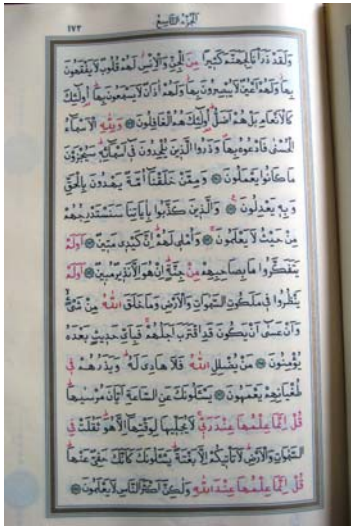 الجزء التاسع
١٧٣
ولقد ذرأنا لجهنم كثيرا من الجن والانس لهم قلوب لا يفقهون
بها ولهم اعين لا يبصرون بها ولهم اذان لا يسمعون بها اولئك
كالانعام بل هم اضل اولئك هم الغافلون ولله الاسماء
الحسنى فادعوه بها وذروا الذين يلحدون في اسمائه سيجزون
ما كانوا يعملون وممن خلقنا امة يهدون بالحق
وبه يعدلون والذين كذبوا باياتنا سنستدرجهم
من حيث لا يعلمون واملي لهم ان كيدي متين اولم
يتفكروا ما بصاحبهم من جنة ان هو الا نذير مبين اولم
ينظروا في ملكوت السموات والارض وما خلق الله من شئ
وان عسى ان يكون قد اقترب اجلهم فباي حديث بعده
يؤمنون من يضلل الله فلا هادي له ويذرهم في
طغيانهم يعمهون يسئلونك عن الساعة ايان مرسيها
قل انما علمها عند ربي لا يجليها لوقتها الا هو ثقلت في
السموات والارض لا تأتيكم الا بغتة يسئلونك كانك حفي عنها
قل انما علمها عند الله ولكن اكثر الناس لا يعلمون